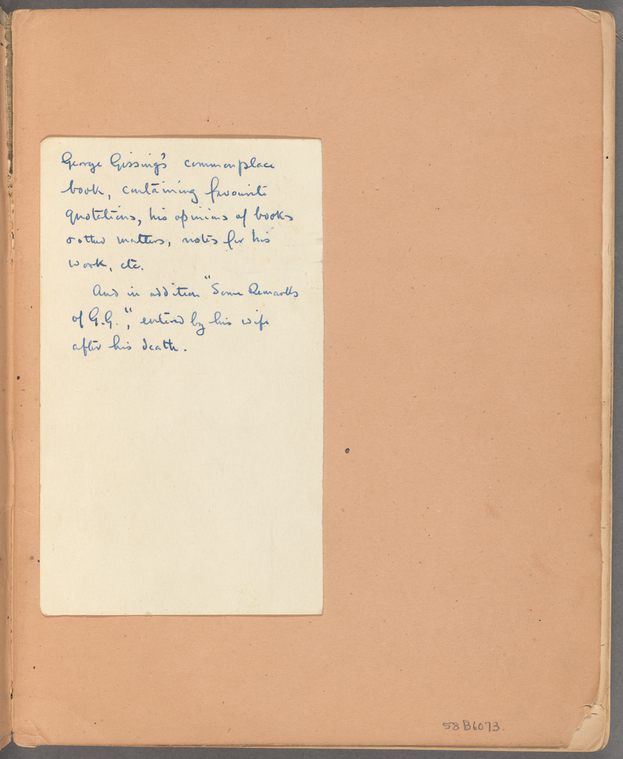 George Gissing's commonplace
book, containing favourite
quotations, his opinions of books
& other matters, notes for his
work, etc.
And in addition "Some Remarks
of G.G.", entered by his wife
after his death.
58B6073